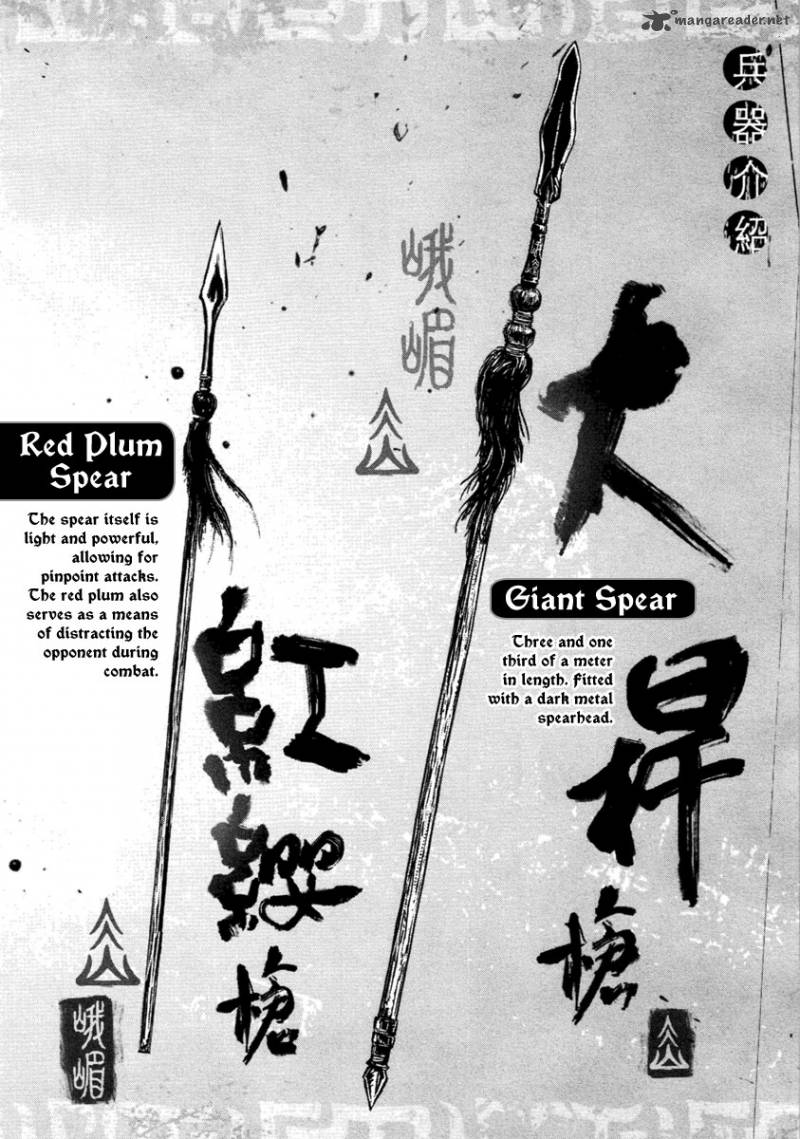 mangareader.net
兵器介紹
峨嵋
大桿槍
Red Plum
Spear
The spear itself is
light and powerful,
allowing for
pinpoint attacks.
The red plum also
serves as a means
of distracting the
opponent during
combat.
Giant Spear
Three and one
third of a meter
in length. Fitted
with a dark metal
spearhead.
紅纓槍
峨嵋